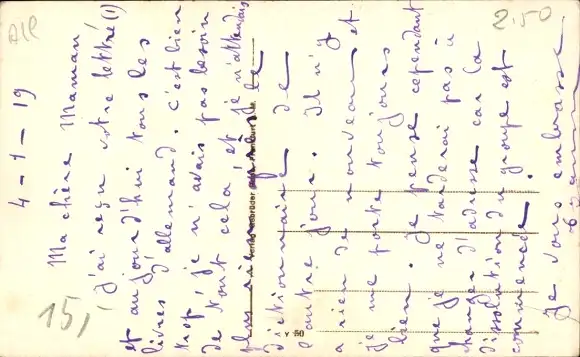 4-1-19
Ma chère Maman
j'ai reçu votre lettre (1)
et aujourd'hui tous les
livres d'allemand. C'est bien
trop, je n'avais pas besoin
de tout cela et je n'attendais
plus rien
dictionnaire de
l'autre jour. Il n'y
a rien de nouveau et
je me porte toujours
bien. Je pense cependant
que je ne tarderai pas à
changer d'adresse car la
dissolution du groupe est
commencée.
Je vous embrasse
15,
2.50
All
v 50